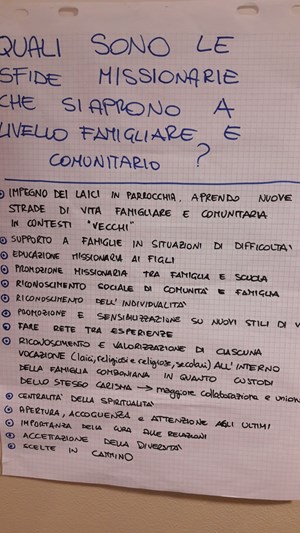 QUALI SONO LE
SFIDE MISSIONARIE
CHE SI APRONO A
LIVELLO FAMIGLIARE E
COMUNITARIO ?
IMPEGNO DEI LAICI IN PARROCCHIA, APRENDO NUOVE
STRADE DI VITA FAMIGLIARE E COMUNITARIA
IN CONTESTI "VECCHI"
SUPPORTO A FAMIGLIE IN SITUAZIONI DI DIFFICOLTA'
EDUCAZIONE MISSIONARIA AI FIGLI
PROMOZIONE MISSIONARIA TRA FAMIGLIA E SCUOLA
RICONOSCIMENTO SOCIALE DI COMUNITA' E FAMIGLIA
RICONOSCIMENTO DELL'INDIVIDUALITA'
PROMOZIONE E SENSIBILIZZAZIONE SU NUOVI STILI DI V
FARE RETE TRA ESPERIENZE
RICONOSCIMENTO E VALORIZZAZIONE DI CIASCUNA
VOCAZIONE (laici, religiosi e religiose, secolari) ALL'INTERNO
DELLA FAMIGLIA COMBONIANA IN QUANTO CUSTODI
DELLO STESSO CARISMA → maggiore collaborazione e union
CENTRALITA' DELLA SPIRITUALITA'
APERTURA, ACCOGLIENZA e ATTENZIONE AGLI ULTIMI
IMPORTANZA DELLA CURA ALLE RELAZIONI
ACCETTAZIONE DELLA DIVERSITA'
SCELTE IN CAMMINO